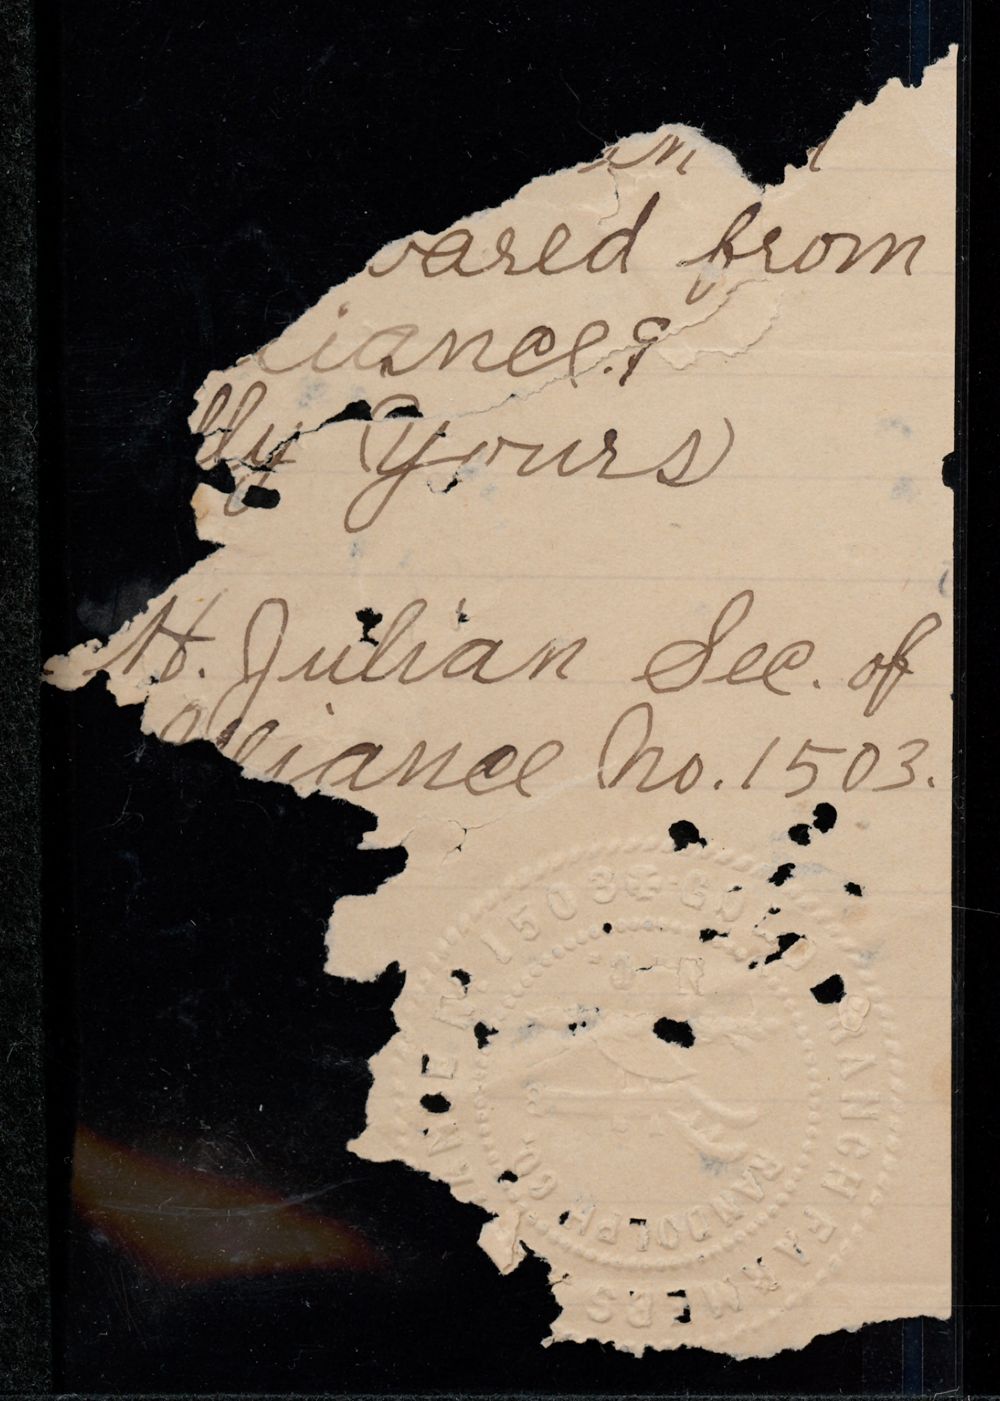 in
vared from
iance.?
lly Yours
H. Julian Sec. of
Alliance No. 1503.
1503 GOLD BRANCH FARMERS
N.C.
RANDOLPH CO.